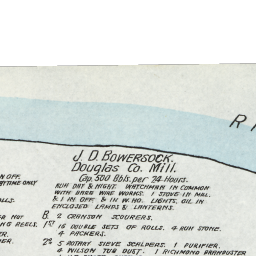 R
J. D. BOWERSOCK.
DOUGLAS CO. MILL.
Cap. 500 Bbls. per 24 Hours.
RUN DAY & NIGHT. WATCHMAN IN COMMON
WITH BARB WIRE WORKS. 1 STOVE IN MILL
& 1 IN OFF. & 1 IN W. HO. LIGHTS, OIL IN
ENCLOSED LAMPS & LANTERNS.
B. 2 CRANSON SCOURERS.
1ST 15 DOUBLE SETS OF ROLLS. 4 RUN STONE.
4 PACKERS.
2D 5 ROTARY SIEVE SCALPERS. 1 PURIFIER.
4 WILSON TUB DUST. 1 RICHMOND BRANDUSTER
N OFF.
YTIME ONLY
LLS.
NG REELS.